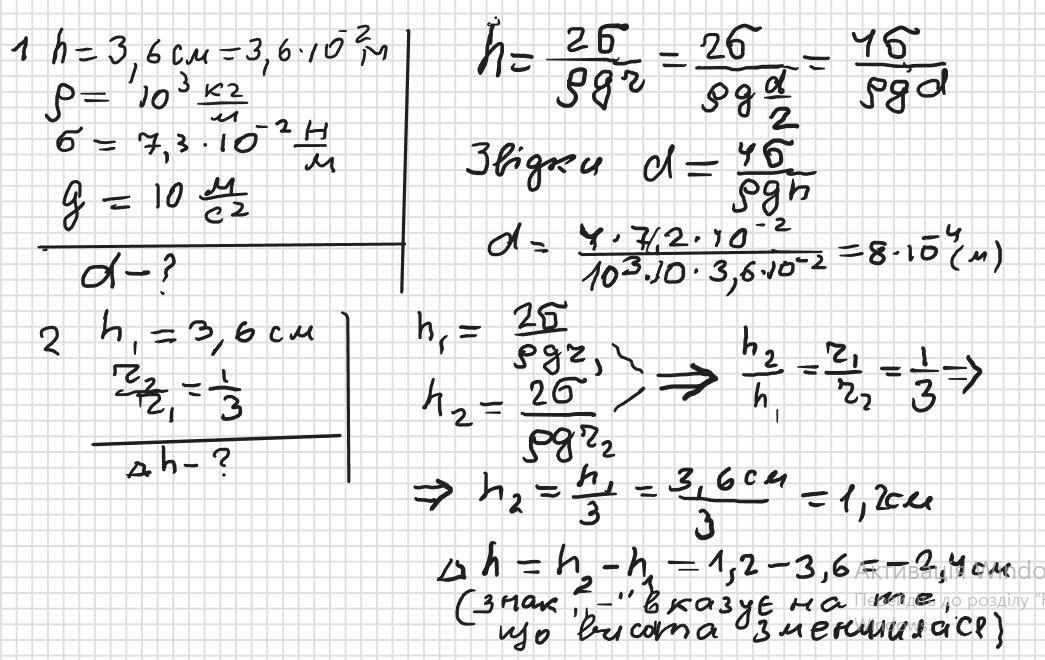 1 h = 3,6 см = 3,6·10⁻² м
ρ = 10³ кг/м
σ = 7,3·10⁻² Н/м
g = 10 м/с²
d - ?
h = 2σ/ρgr = 2σ/ρg d/2 = 4σ/ρgd
Звідки d = 4σ/ρgh
d = 4·7,2·10⁻²/10³·10·3,6·10⁻² = 8·10⁻⁴ (м)
2 h₁ = 3,6 см
r₂/r₁ = 1/3
Δh - ?
h₁ = 2σ/ρgr₁
h₂ = 2σ/ρgr₂
⇒ h₂/h₁ = r₁/r₂ = 1/3 ⇒
⇒ h₂ = h₁/3 = 3,6 см/3 = 1,2 см
Δh = h₂ - h₁ = 1,2 - 3,6 = -2,4 см
(знак „-" вказує на те
що висота зменшилася)
Активація Windo
Перейдіть до розділу "
Windows